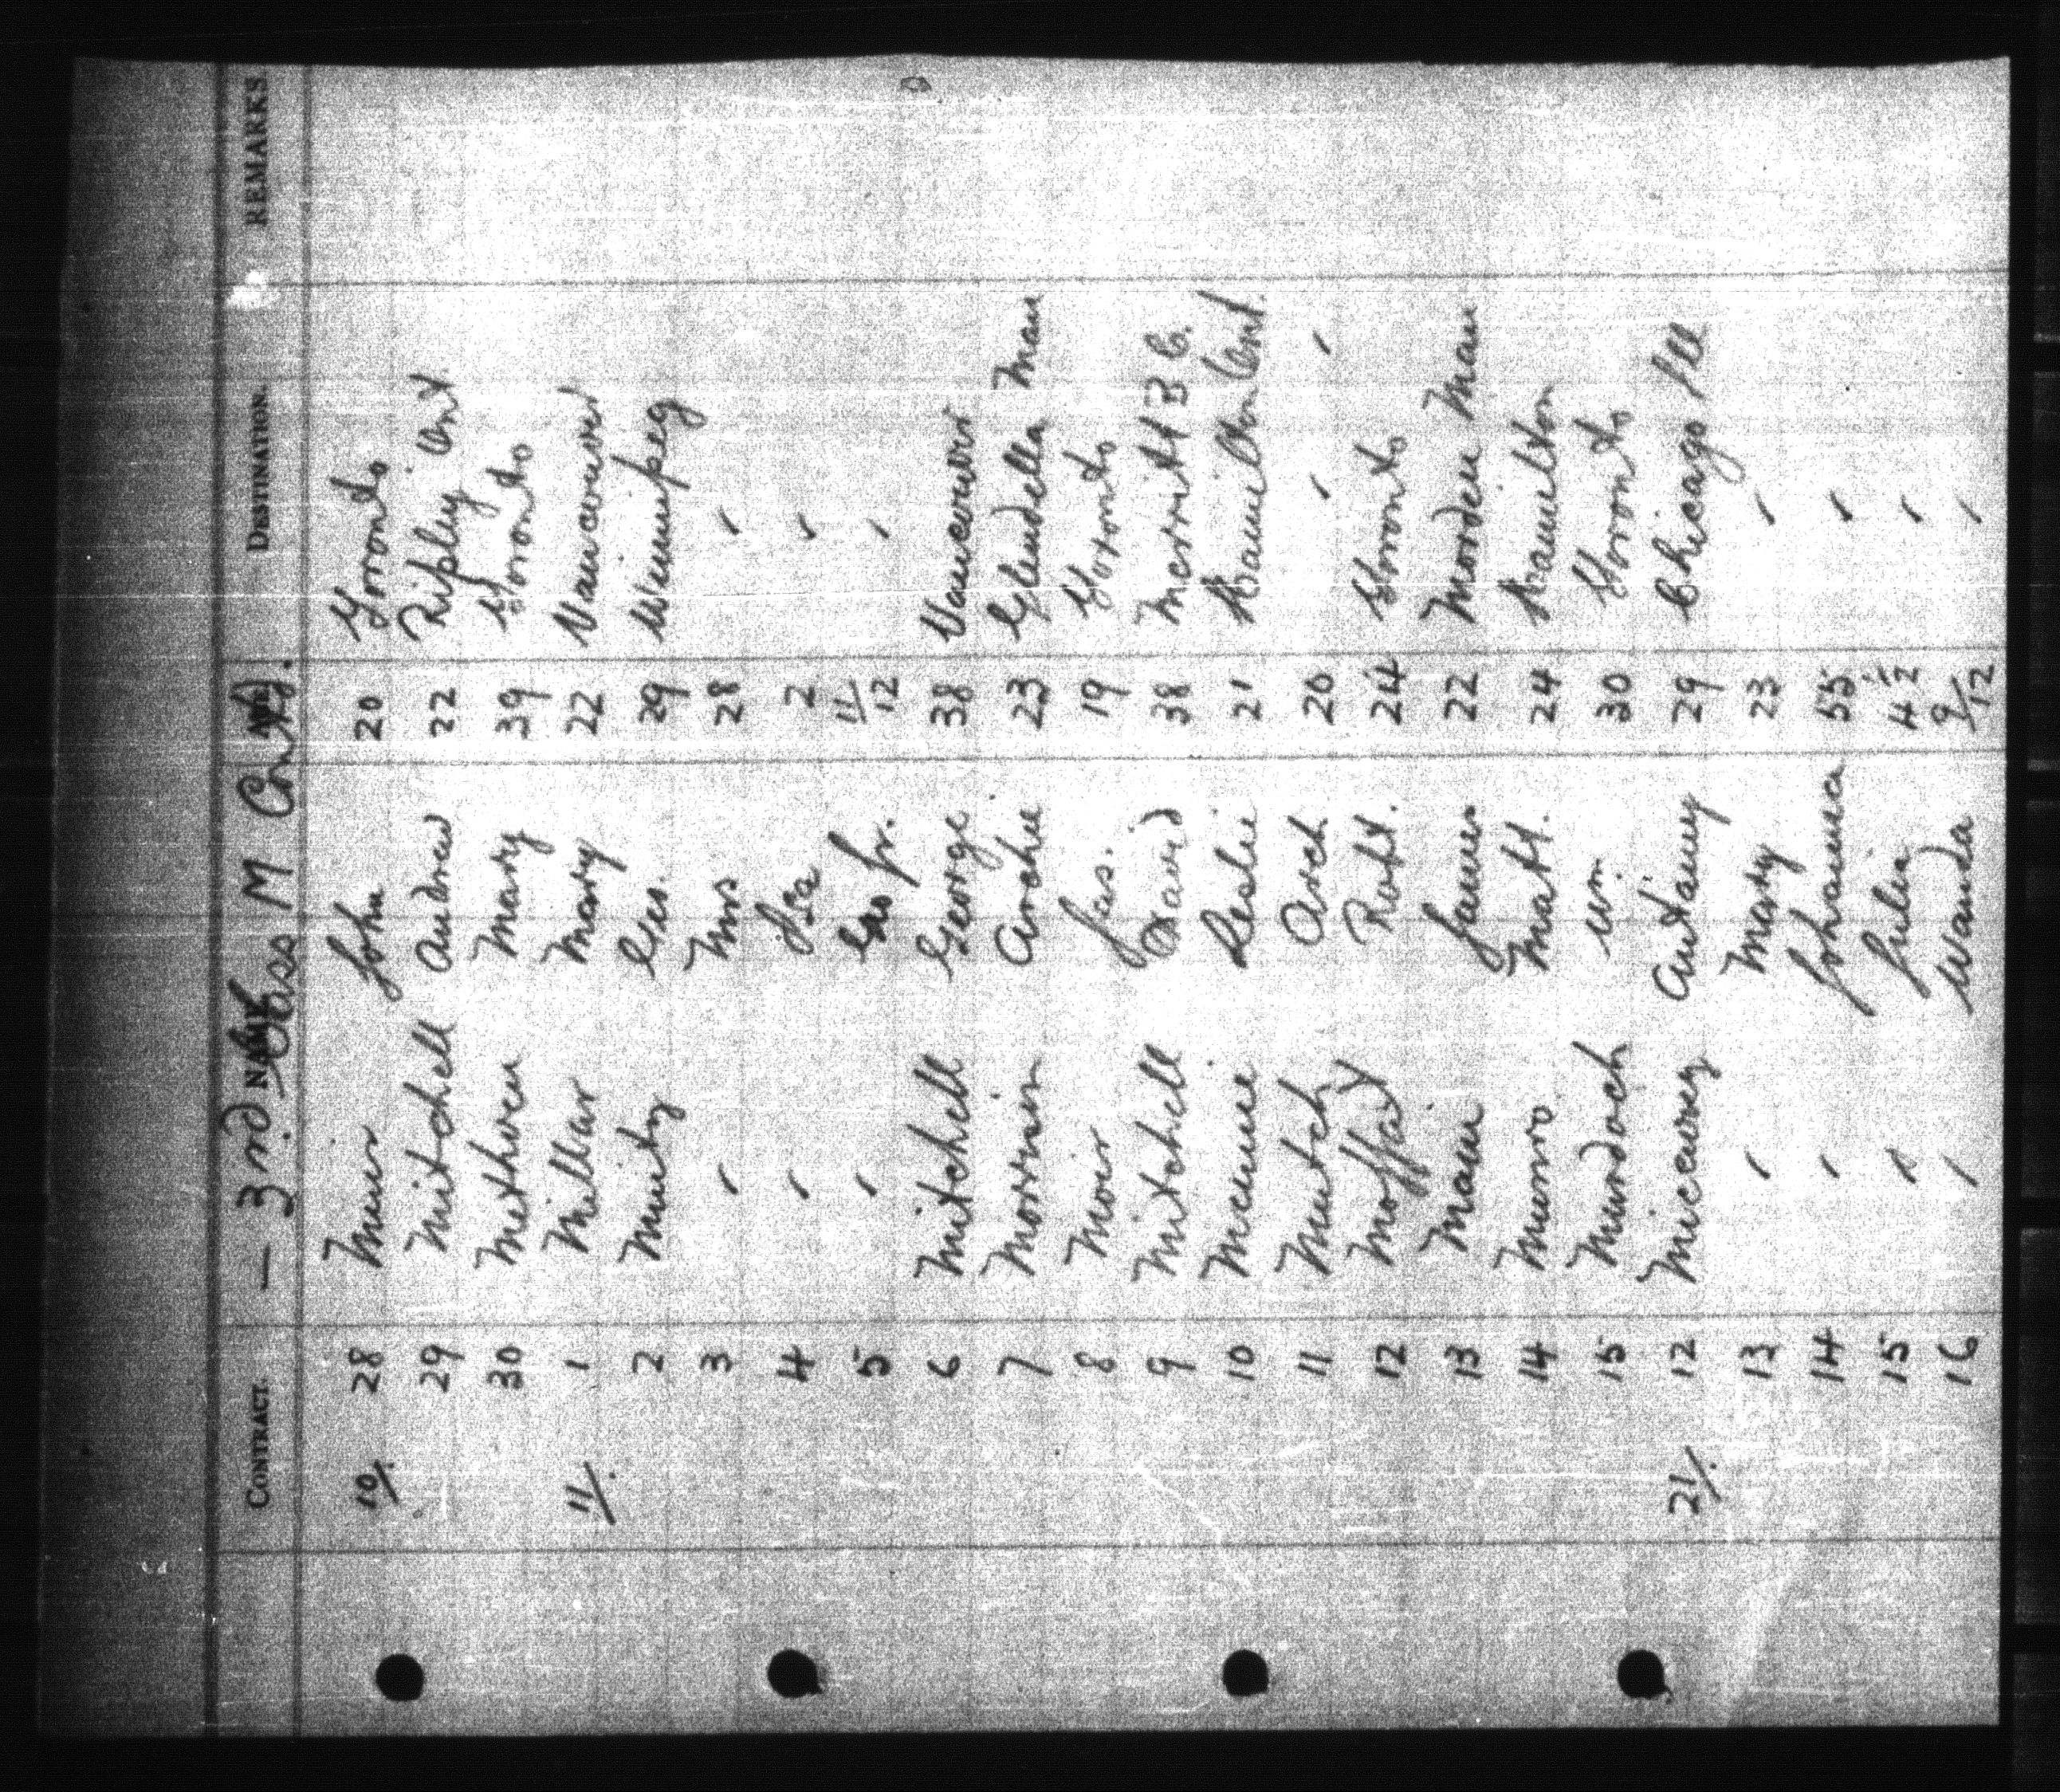 — 3rd Class M Contg.
CONTRACT. NAME AGE DESTINATION. REMARKS
10/. 28 Muir John 20 Toronto
29 Mitchell Andrew 22 Ripley Ont.
30 Methven Mary 39 Toronto
11/. 1 Millar Mary 22 Vancouver
2 Minty Geo. 29 Winnipeg
3 " Mrs 28 "
4 " 2 "
5 " Geo Jr. 11/12 "
6 Mitchell George 38 Vancouver
7 Morrin Archie 23 Glendella Man
8 Moir Jas. 19 Toronto
9 Mitchell David 38 Merritt B C.
10 Leslie 21 Hamilton Ont.
11 Mutch Arch 20 " "
12 Moffat Robt. 24 Toronto
13 Main James 22 Morden Man
14 Munro Matt. 24 Hamilton
15 Murdoch Wm. 30 Toronto
21/. 12 Antany 29 Chicago Ill
13 " Mary 23 "
14 " Johanna 55 "
15 " Julia 4½ "
16 " Wanda 9/12 "